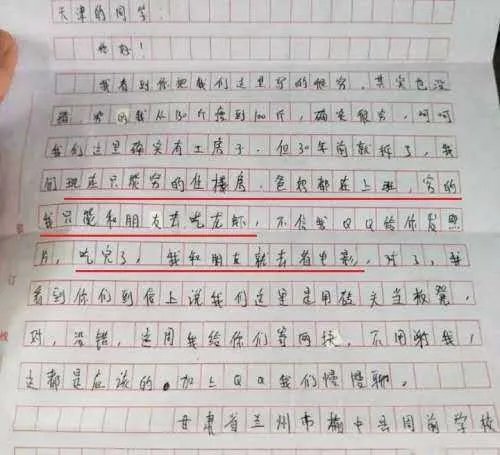 天津的同学:
你好!
我看到你把我们这里写的很穷，其实也没
错，穷的我从130斤瘦到100斤，确实很穷，呵呵
我们这里确实有土房子，但30年前就拆了，我
们现在只能穷的住楼房，爸妈都在上班，穷的
我只能和朋友去吃龙虾，不信我QQ给你发照
片，吃完了，我和朋友就去看电影，对了，我
看到你们到信上说我们这里是用砖头当板凳，
对，没错，这周我给你们寄两块，不用谢我，
这都是应该的。加上QQ我们慢慢聊。
甘肃省兰州市榆中县周前学校
订